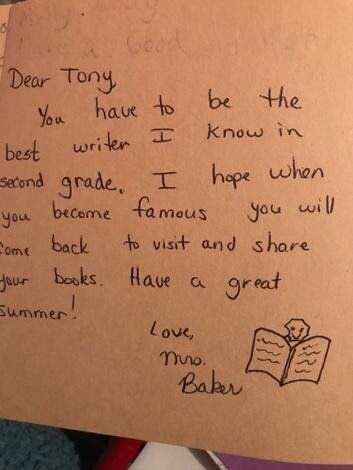 Have a Good Summer
Dear Tony,
You have to be the
best writer I know in
second grade. I hope when
you become famous you will
come back to visit and share
your books. Have a great
summer!
Love,
Mrs.
Baker